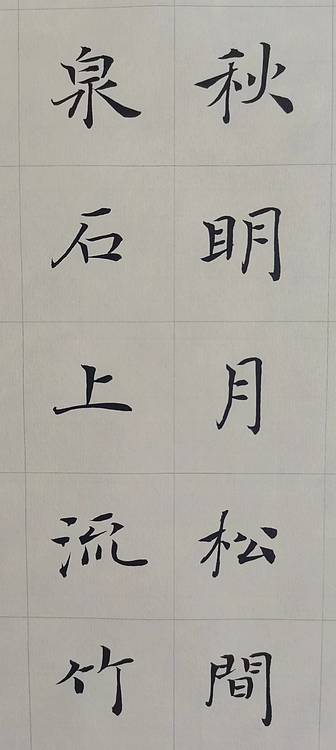 秋明月松間
泉石上流竹